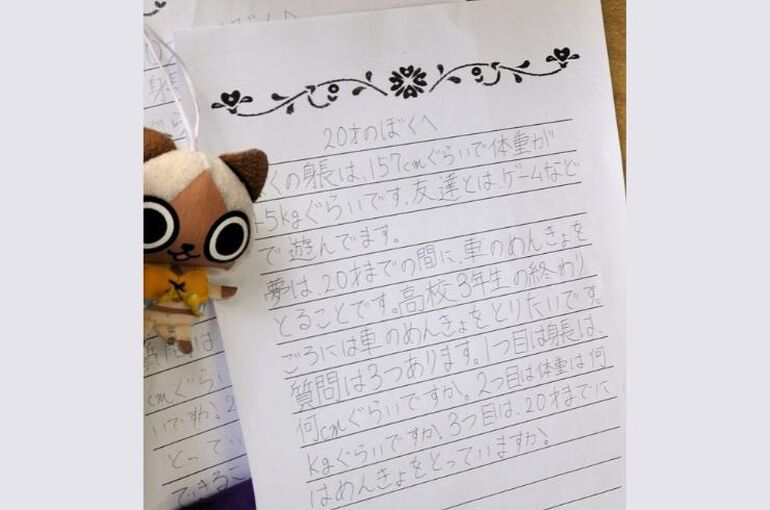 20才のぼくへ
くの身長は、157cmぐらいで体重が
5kgぐらいです。友達とは、ゲームなど
で遊んでます。
夢は、20才までの間に、車のめんきょを
とることです。高校3年生の終わり
ごろには車のめんきょをとりたいです。
質問は3つあります。1つ目は身長は、
何cmぐらいですか。2つ目は体重は何
kgぐらいですか。3つ目は、20才までに
はめんきょをとっていますか。
身長
質問は
cmぐらい
いですか。2
とってい
できるこ